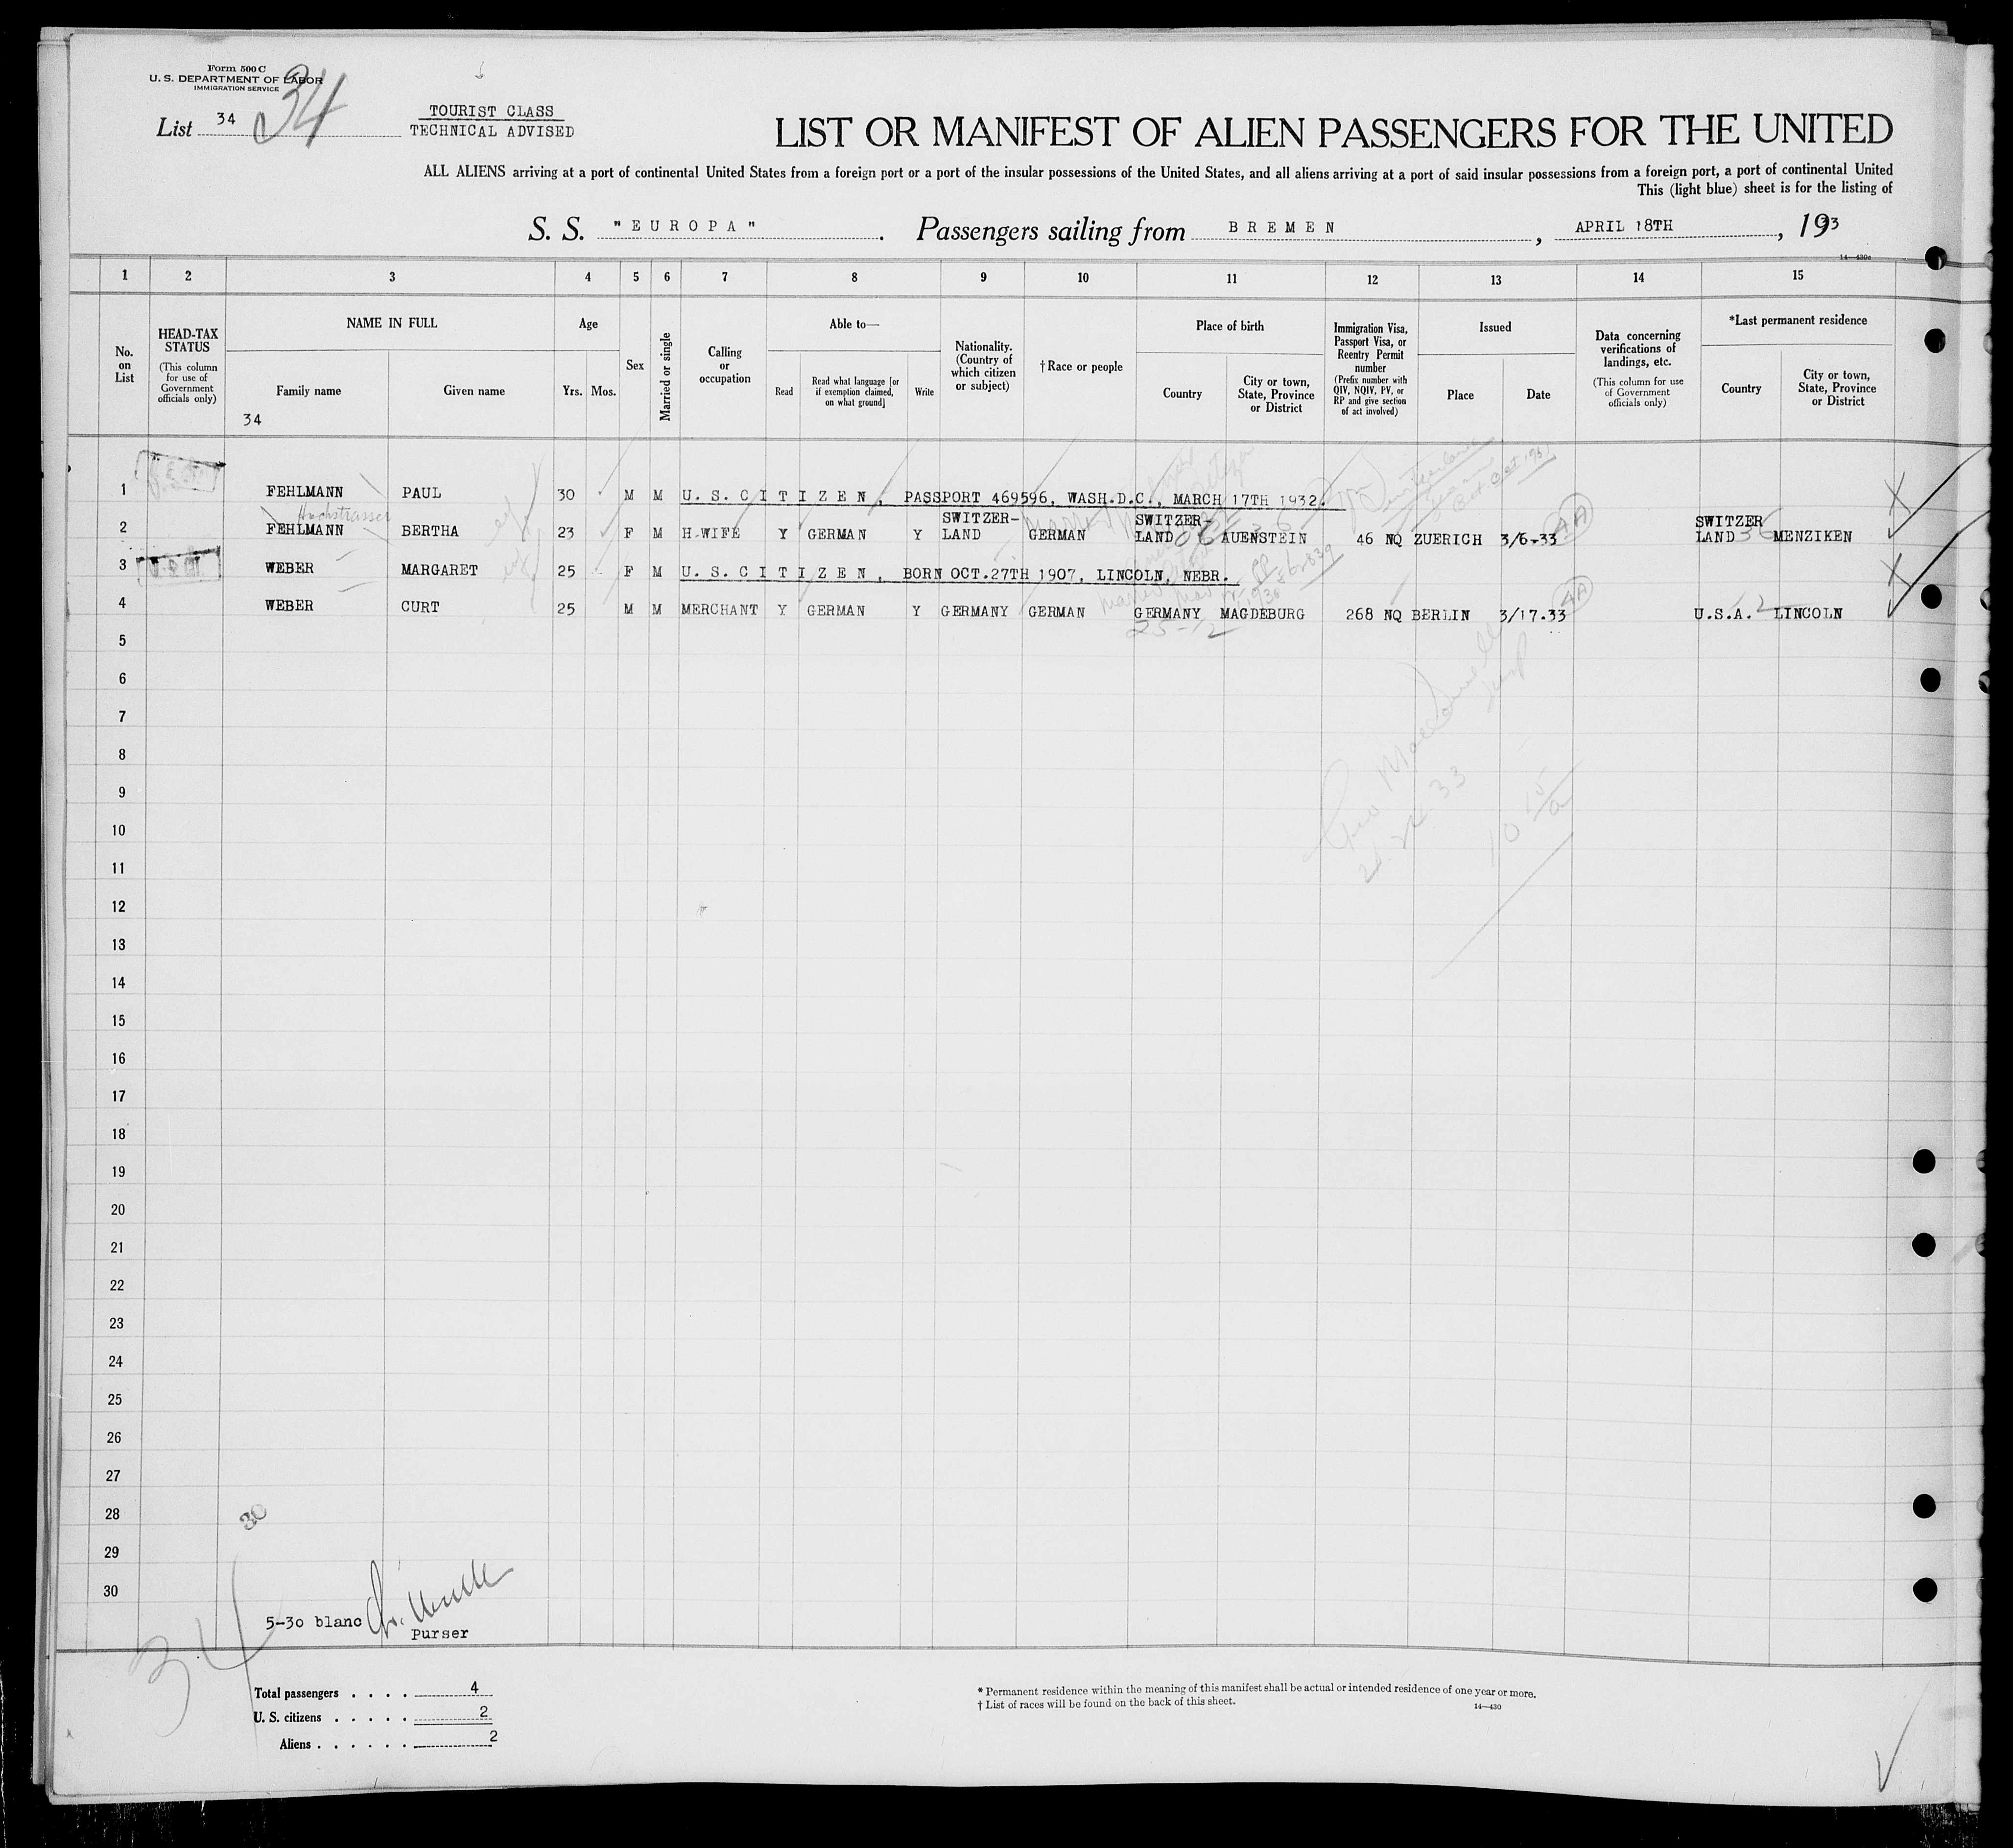 Form 500 C
U. S. DEPARTMENT OF LABOR
IMMIGRATION SERVICE
List 34 34
TOURIST CLASS
TECHNICAL ADVISED
LIST OR MANIFEST OF ALIEN PASSENGERS FOR THE UNITED
ALL ALIENS arriving at a port of continental United States from a foreign port or a port of the insular possessions of the United States, and all aliens arriving at a port of said insular possessions from a foreign port, a port of continental United
This (light blue) sheet is for the listing of
S. S. "EUROPA". Passengers sailing from BREMEN, APRIL 18TH, 1933
14—430c
1 2 3 4 5 6 7 8 9 10 11 12 13 14 15
No. on List
HEAD-TAX STATUS (This column for use of Government officials only)
NAME IN FULL
Family name
Given name
34
Age
Yrs. Mos.
Sex
Married or single
Calling or occupation
Able to—
Read
Read what language [or if exemption claimed, on what ground]
Write
Nationality. (Country of which citizen or subject)
† Race or people
Place of birth
Country
City or town, State, Province or District
Immigration Visa, Passport Visa, or Reentry Permit number (Prefix number with QIV, NQIV, PV, or RP and give section of act involved)
Issued
Place
Date
Data concerning verifications of landings, etc. (This column for use of Government officials only)
*Last permanent residence
Country
City or town, State, Province or District
1 FEHLMANN PAUL 30 M M U. S. CITIZEN, PASSPORT 469596, WASH.D.C., MARCH 17TH 1932.
Hochstrasser
2 FEHLMANN BERTHA 23 F M H-WIFE Y GERMAN Y SWITZER-LAND GERMAN SWITZER-LAND AUENSTEIN 46 NQ ZUERICH 3/6-33 AA SWITZER LAND 36 MENZIKEN
3 WEBER MARGARET 25 F M U. S. CITIZEN, BORN OCT.27TH 1907, LINCOLN, NEBR.
4 WEBER CURT 25 M M MERCHANT Y GERMAN Y GERMANY GERMAN GERMANY MAGDEBURG 268 NQ BERLIN 3/17.33 AA U.S.A. 12 LINCOLN
25-12
5
6
7
8
9
10
11
12
13
14
15
16
17
18
19
20
21
22
23
24
25
26
27
28
29
30
30
5-30 blanc
Purser
34
Total passengers . . . . 4
U. S. citizens . . . . . 2
Aliens . . . . . . 2
* Permanent residence within the meaning of this manifest shall be actual or intended residence of one year or more.
† List of races will be found on the back of this sheet.
14—430